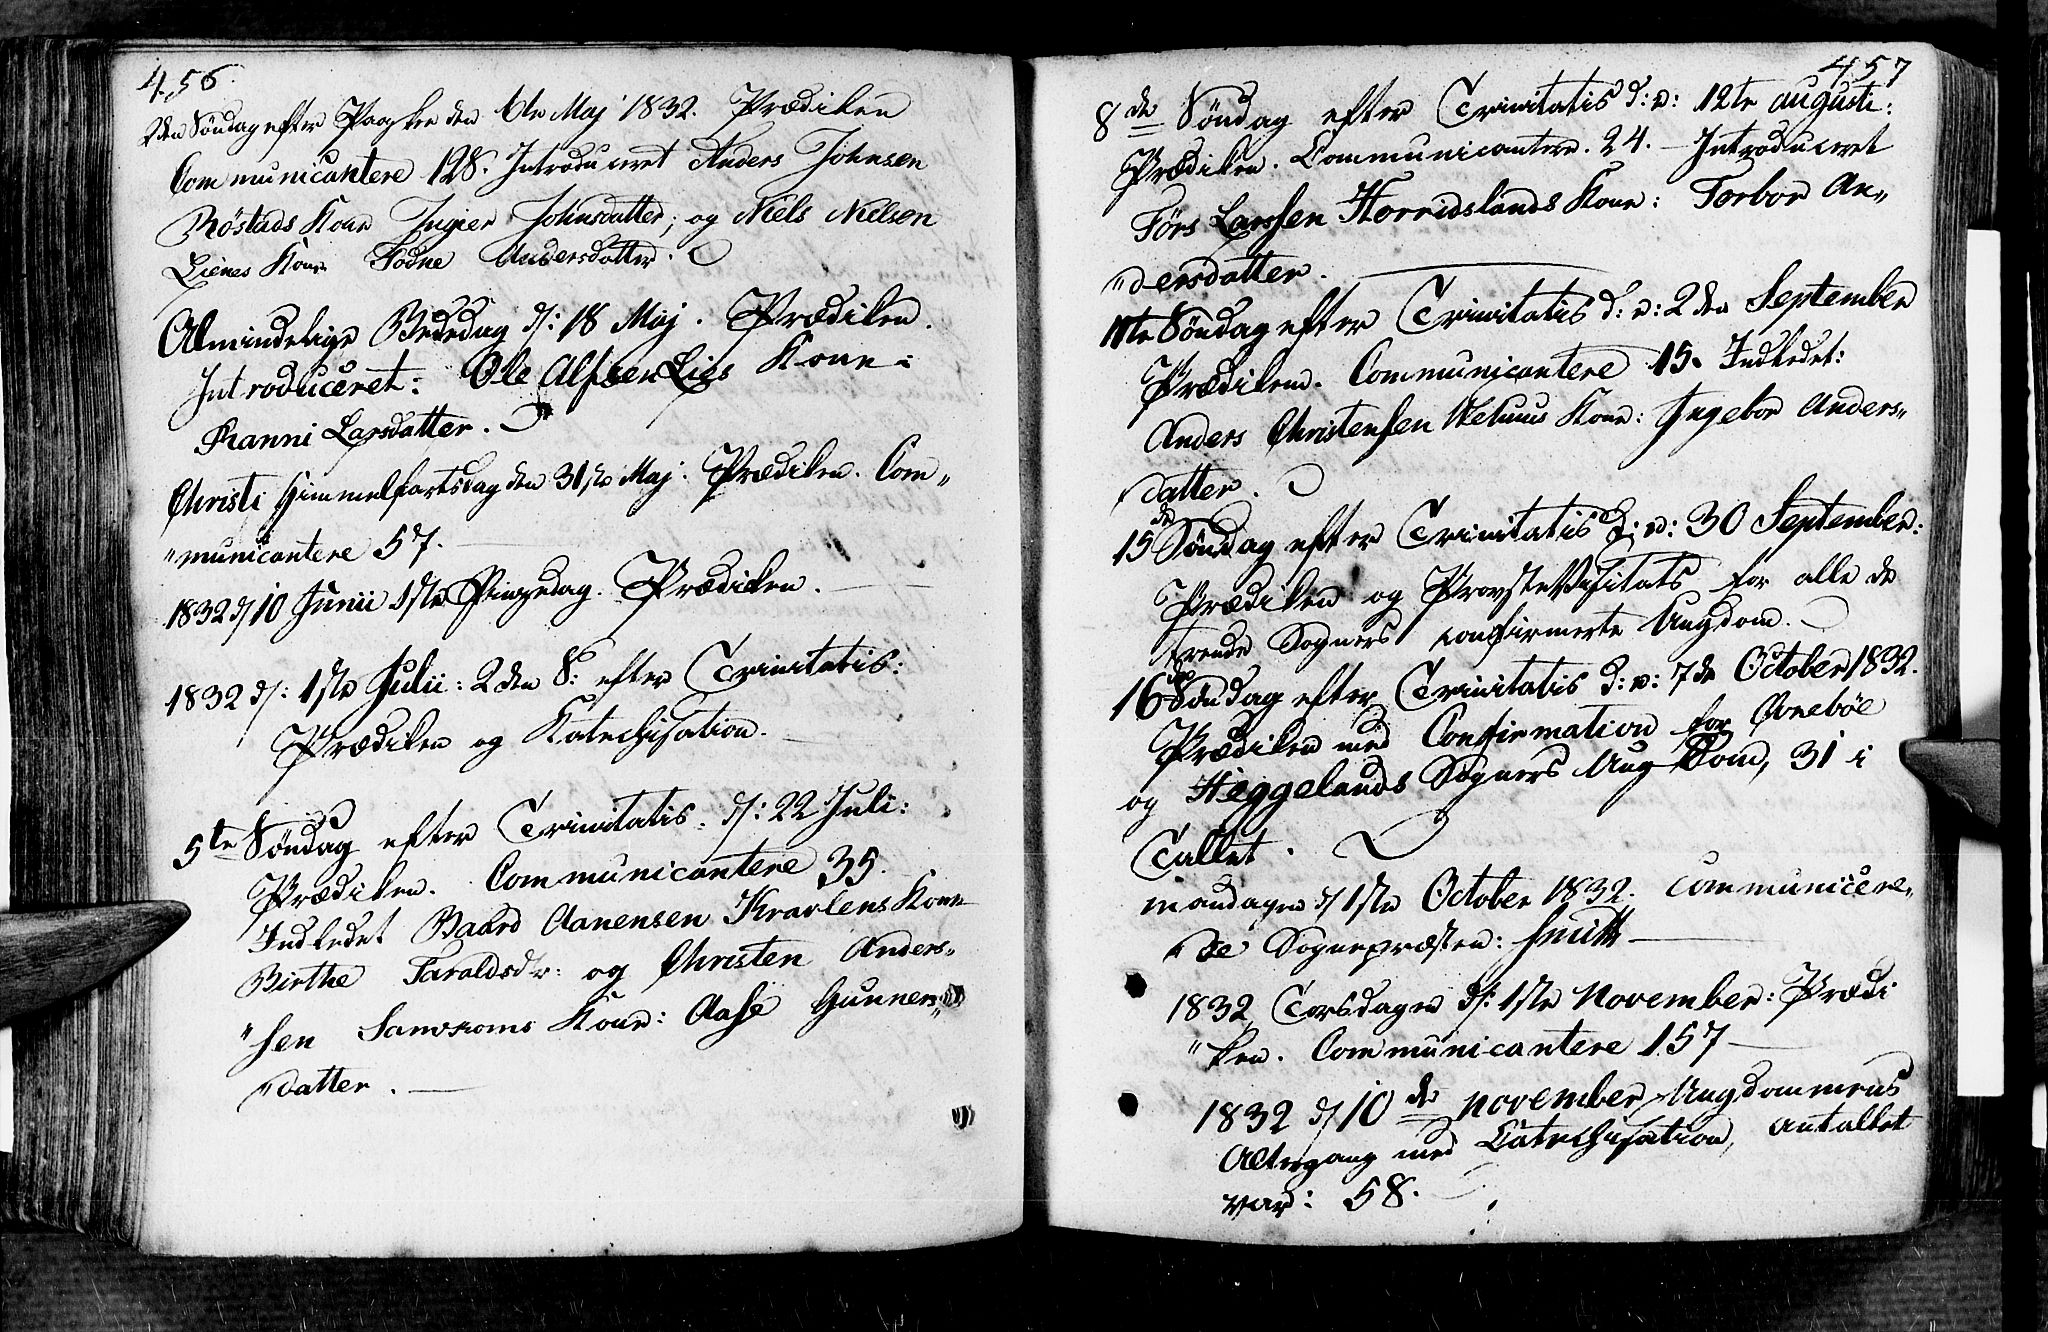 456.
2den Søndag efter Paaske den 6te Maj 1832. Prædiken
Communicantere 128. Introduceret Anders Johnsen
Röstads Kone Ingier Johnsdatter, og Niels Nielsen
Lienes Kone Todne Andersdatter.
Almindelige Bededag d: 18 Maj. Prædiken.
Introduceret: Ole Alfsen Lies Kone:
Ranni Larsdatter.
Christi Himmelfartsdag den 31te Maj: Prædiken. Com„
„municantere 57.
1832 d 10 Junii 1ste Pinzedag. Prædiken.
1832 d: 1ste Julii: 2den S: efter Trinitatis:
Prædiken og Katechisation.
5te Søndag efter Trinitatis. d: 22 Juli:
Prædiken. Communicantere 35.
Indledet Baard Aanensen Kravlens Kone
Birthe Taraldsdr: og Christen Anders„
„sen Kone: Aase Gunners„
„datter.
457
8de Søndag efter Trinitatis d: v: 12te augusti:
Prædiken. Communicantere. 24. – Introduceret
Törs Larssen Horridslands Kone: Torbor An„
„dersdatter.
11te Søndag efter Trinitatis d: v: 2den September
Prædiken. Communicantere 15. Indledet:
Anders Christensen Kone: Ingebor Anders„
„datter.
15de Søndag efter Trinitatis d: v: 30 September:
Prædiken og ProvsteVisitats for alle de
trende Sogners confirmerte Ungdom.
16de Søndag efter Trinitatis d: v: 7de October 1832.
Prædiken med Confirmation for Ovnebøe
og Heggelands Sogners UngDom, 31 i
Tallet.
mandagen d 1ste October 1832. communicere„
„de Sognepræsten: Smitt
1832 Torsdagen d: 1ste November: Prædi
„ken. Communicantere 157
1832 d 10de november Ungdommens
Altergang med Catechisation, antallet
var: 58.